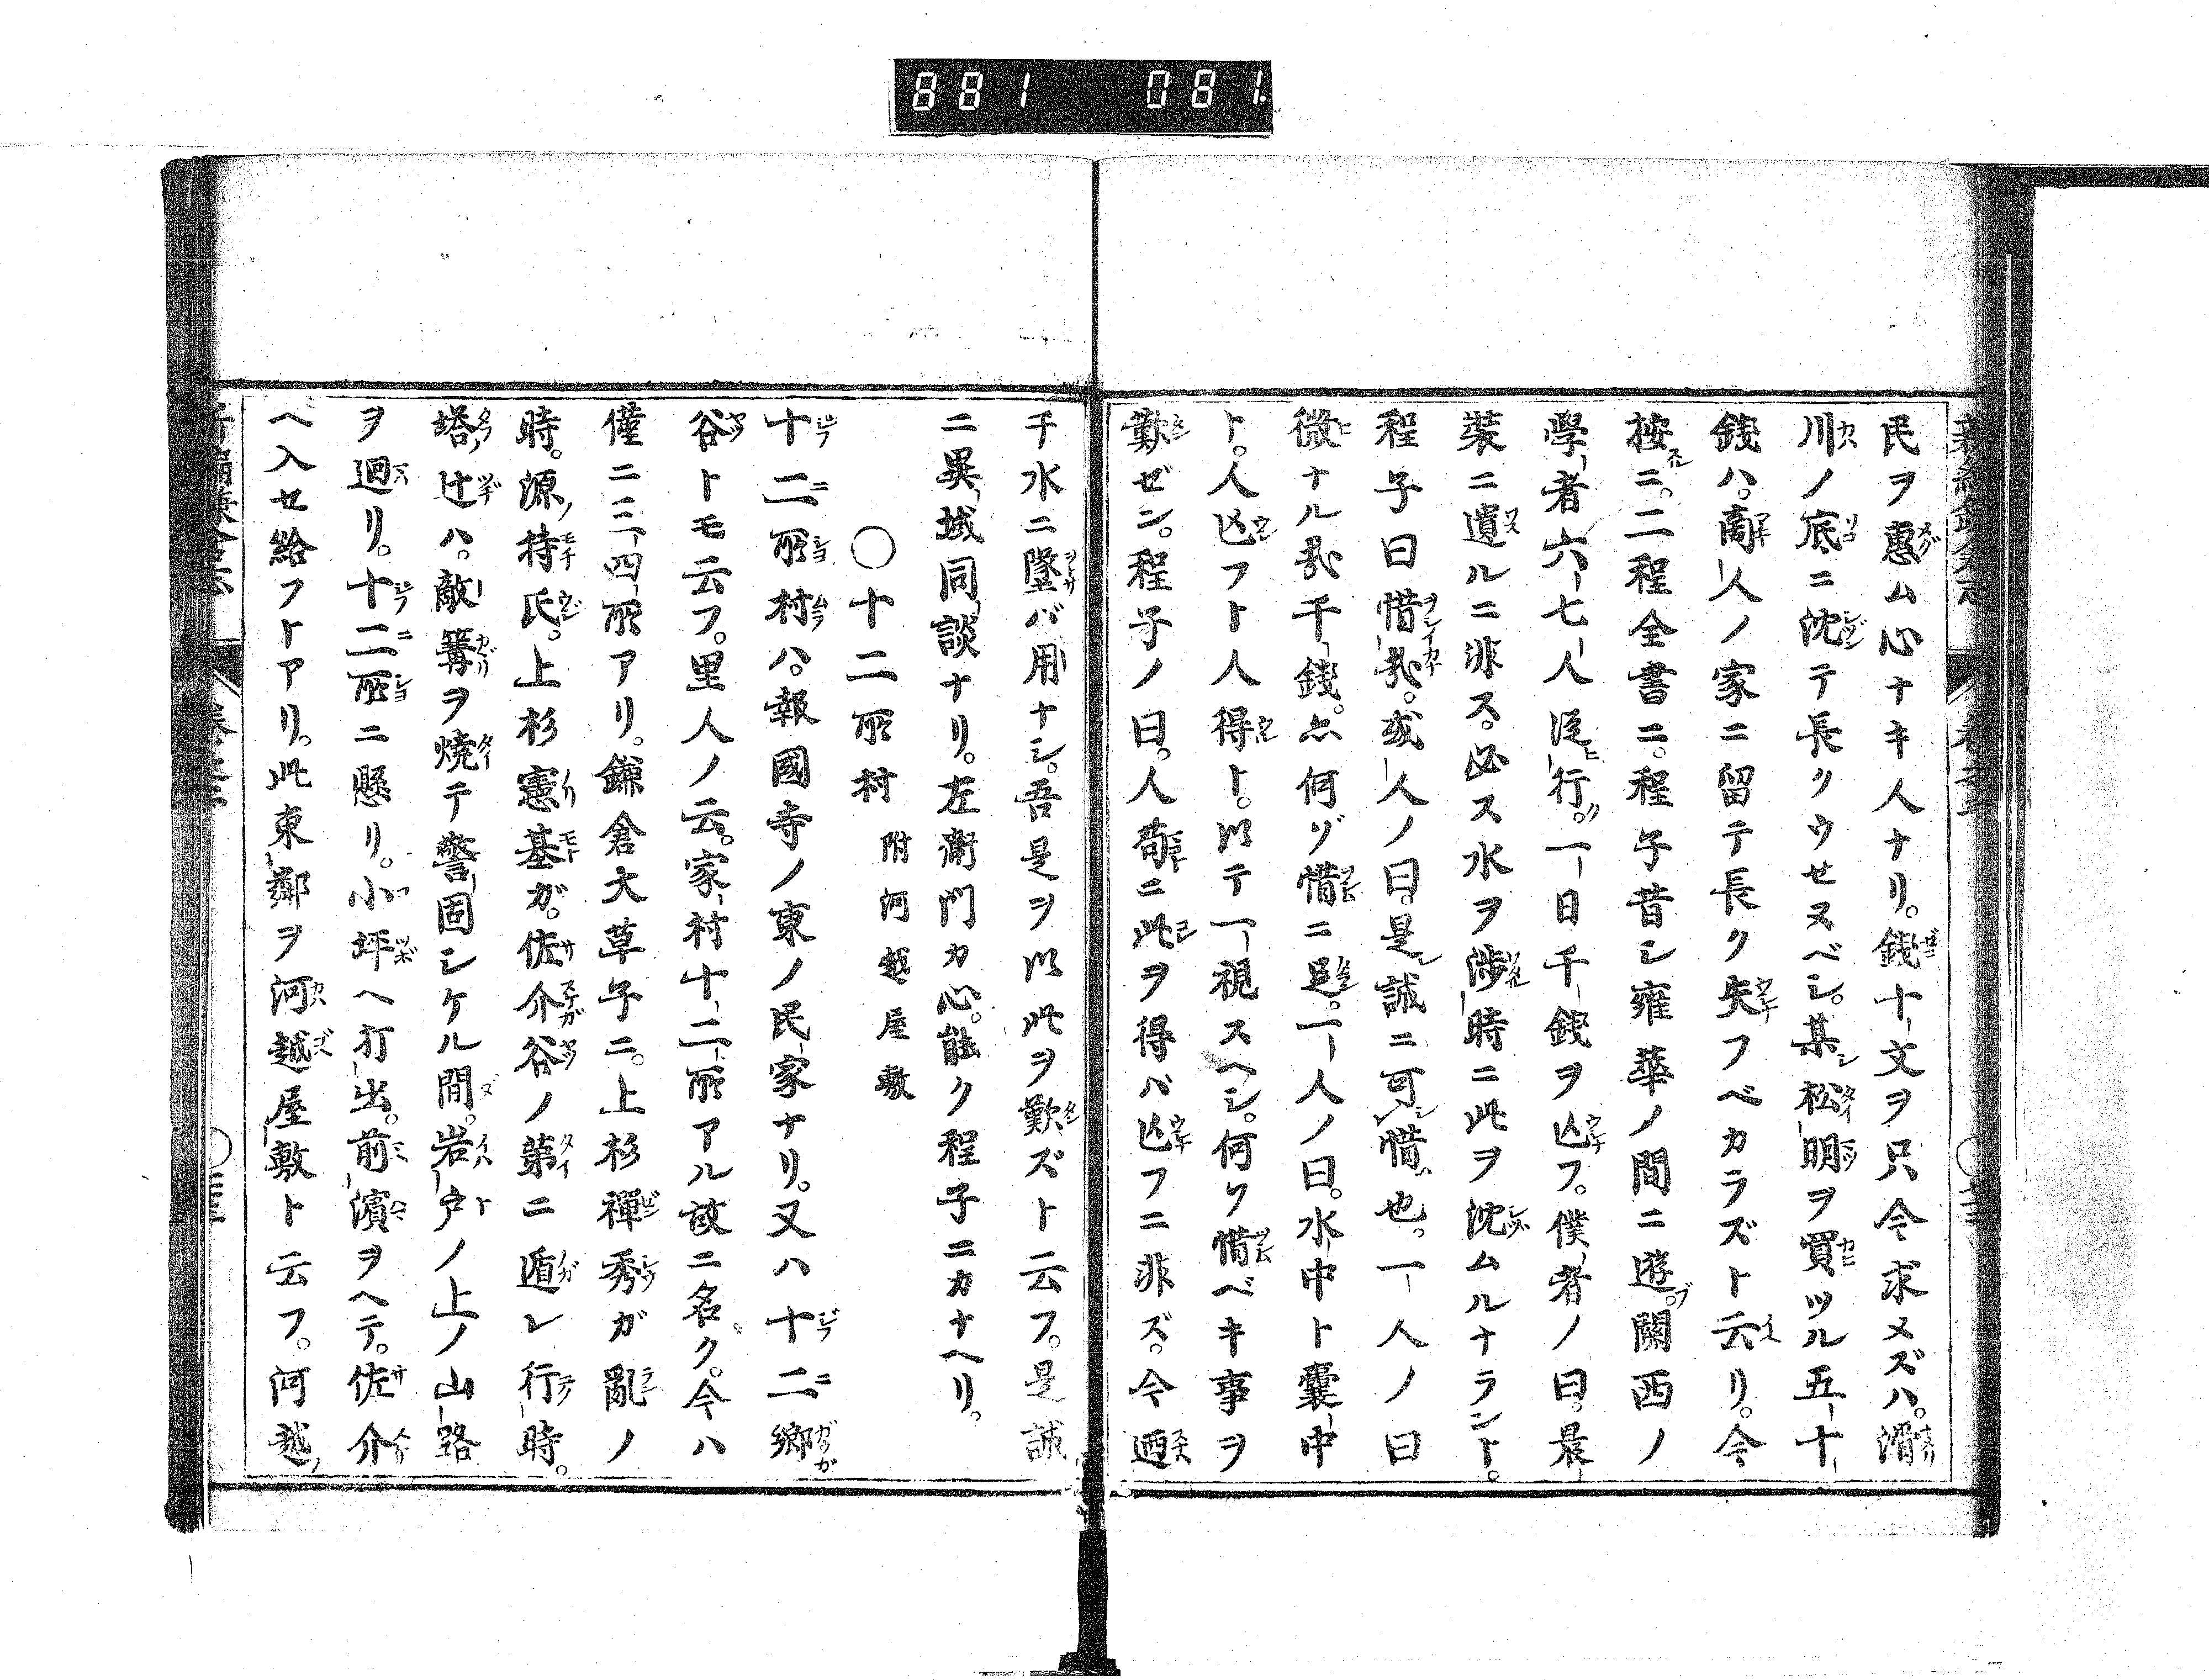 881 081
民ヲ惠ム心ナキ人ナリ。錢十文ヲ只今求メズハ。滑
川ノ底ニ沈テ長クウセヌベシ。某松明ヲ買ツル五十
錢ハ。商人ノ家ニ留テ長ク失フベカラズト云リ。今
按ニ。二程全書ニ。程子昔シ雍華ノ間ニ遊。關西ノ
學者六七人從行。一日千錢ヲ亾フ。僕者ノ曰。晨
裝ニ遺ルニ非ス。必ス水ヲ涉時ニ此ヲ沈ムルナラント。
程子曰惜哉。或人ノ曰。是誠ニ可惜也。一人ノ曰
微ナル哉千錢。亦何ゾ惜ニ足。一人ノ曰。水中ト囊中
ト。人亾フト人得ト。以テ一視スヘシ。何ソ惜ベキ事ヲ
歎ゼン。程子ノ曰。人苟ニ此ヲ得バ亾フニ非ズ。今迺
千水ニ墜バ用ナシ。吾是ヲ以此ヲ歎ズト云フ。是誠
ニ異域同談ナリ。左衞門カ心。能ク程子ニカナヘリ。
〇十二所村 附河越屋敷
十二所村ハ。報國寺ノ東ノ民家ナリ。又ハ十二鄉
谷トモ云フ。里人ノ云。家村十二所アル故ニ名ク。今ハ
僅ニ三四所アリ。鎌倉大草子ニ。上杉禪秀ガ亂ノ
時。源持氏。上杉憲基ガ。佐介谷ノ第ニ遁レ行時。
塔辻ハ。敵篝ヲ燒テ警固シケル間。岩戶ノ上ノ山路
ヲ迴リ。十二所ニ懸リ。小坪ヘ打出。前濱ヲヘテ。佐介
ヘ入セ給フトアリ。此東鄰ヲ河越屋敷ト云フ。河越